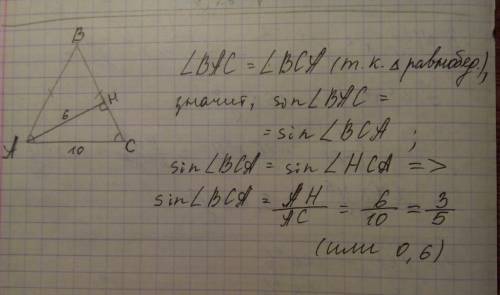 B
H
6
A
10
C
∠BAC = ∠BCA (т.к. Δ равнобед),
значит, sin∠BAC =
= sin∠BCA ;
sin∠BCA = sin∠HCA =>
sin∠BCA = AH/AC = 6/10 = 3/5
(или 0,6)